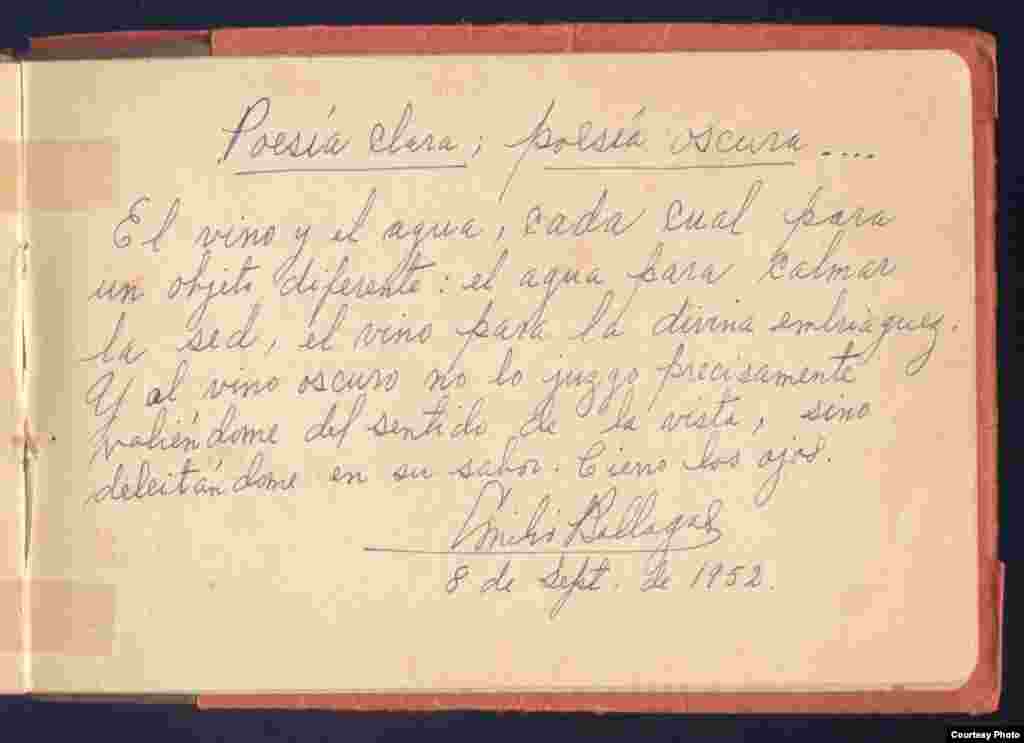 Poesía clara; poesía oscura....
El vino y el agua, cada cual para
un objeto diferente: el agua para calmar
la sed, el vino para la divina embriaguez.
Y al vino oscuro no lo juzgo precisamente
valiéndome del sentido de la vista, sino
deleitándome en su sabor. Cierro los ojos.
Emilio Ballagas
8 de Sept. de 1952.
Courtesy Photo